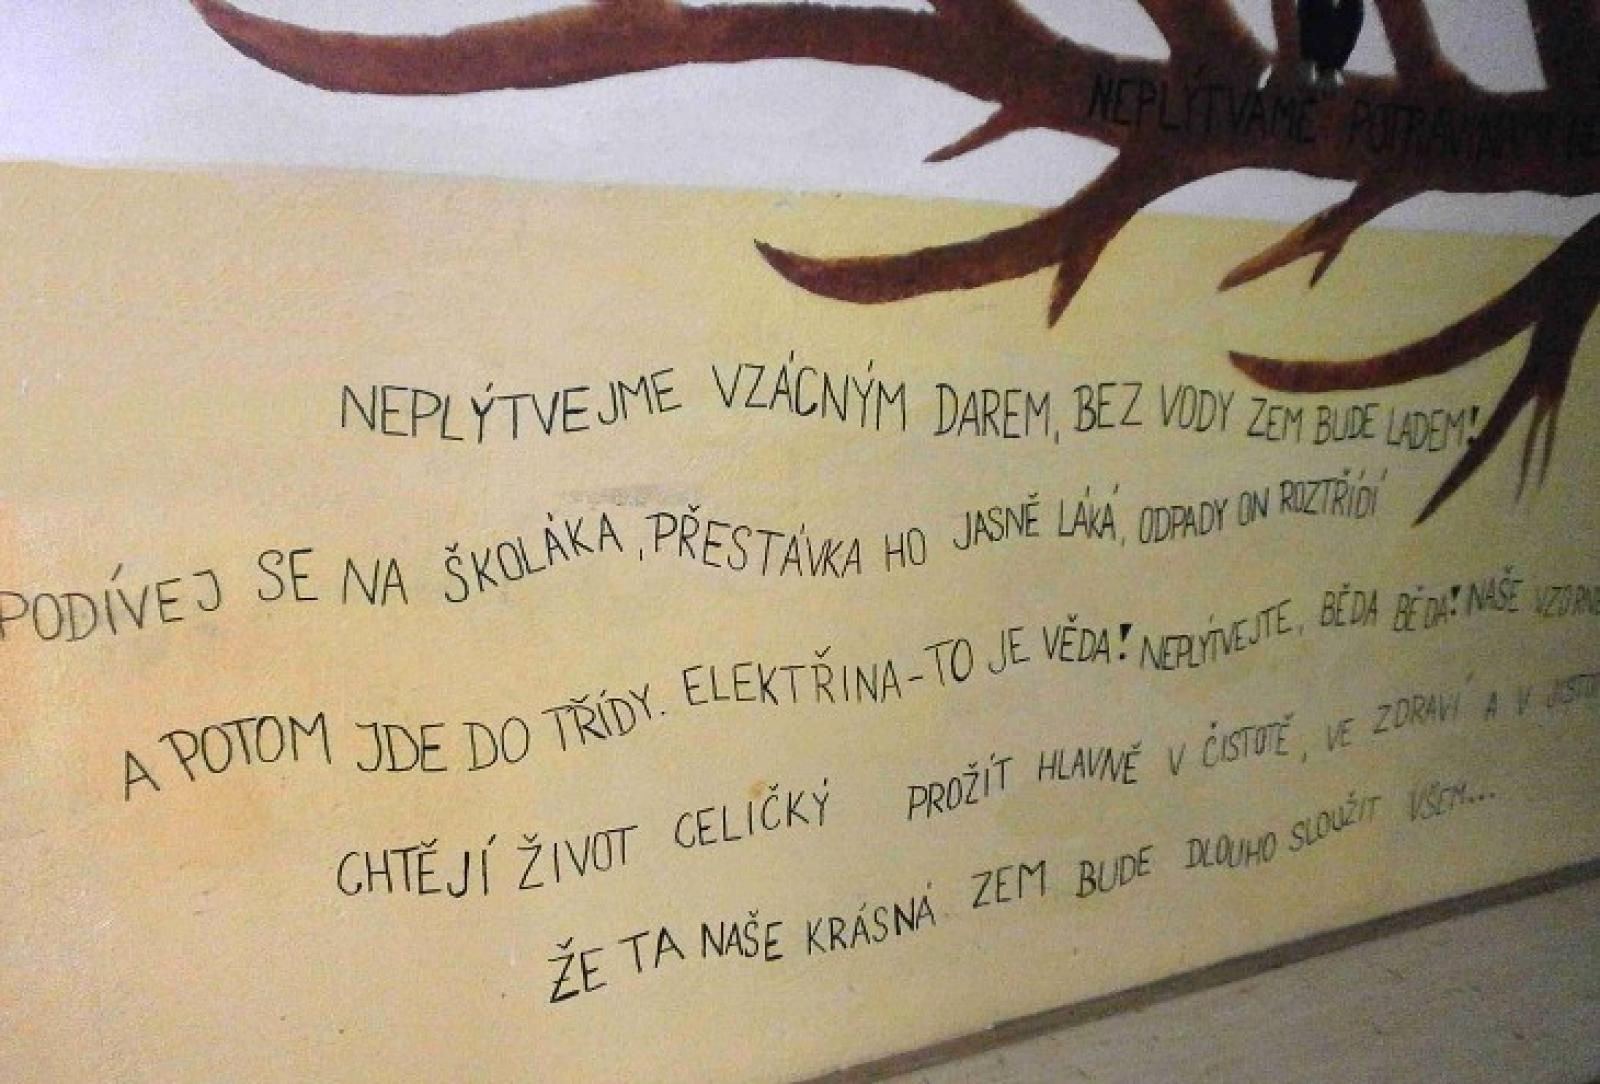 NEPLÝTVÁME POTRAVINAMI
NEPLÝTVEJME VZÁCNÝM DAREM, BEZ VODY ZEM BUDE LADEM!
PODÍVEJ SE NA ŠKOLÁKA, PŘESTÁVKA HO JASNĚ LÁKÁ, ODPADY ON ROZTŘÍDÍ
A POTOM JDE DO TŘÍDY. ELEKTŘINA-TO JE VĚDA! NEPLÝTVEJTE, BĚDA BĚDA! NAŠE
CHTĚJÍ ŽIVOT CELIČKÝ PROŽÍT HLAVNĚ V ČISTOTĚ, VE ZDRAVÍ A V
ŽE TA NAŠE KRÁSNÁ ZEM BUDE DLOUHO SLOUŽIT VŠEM...